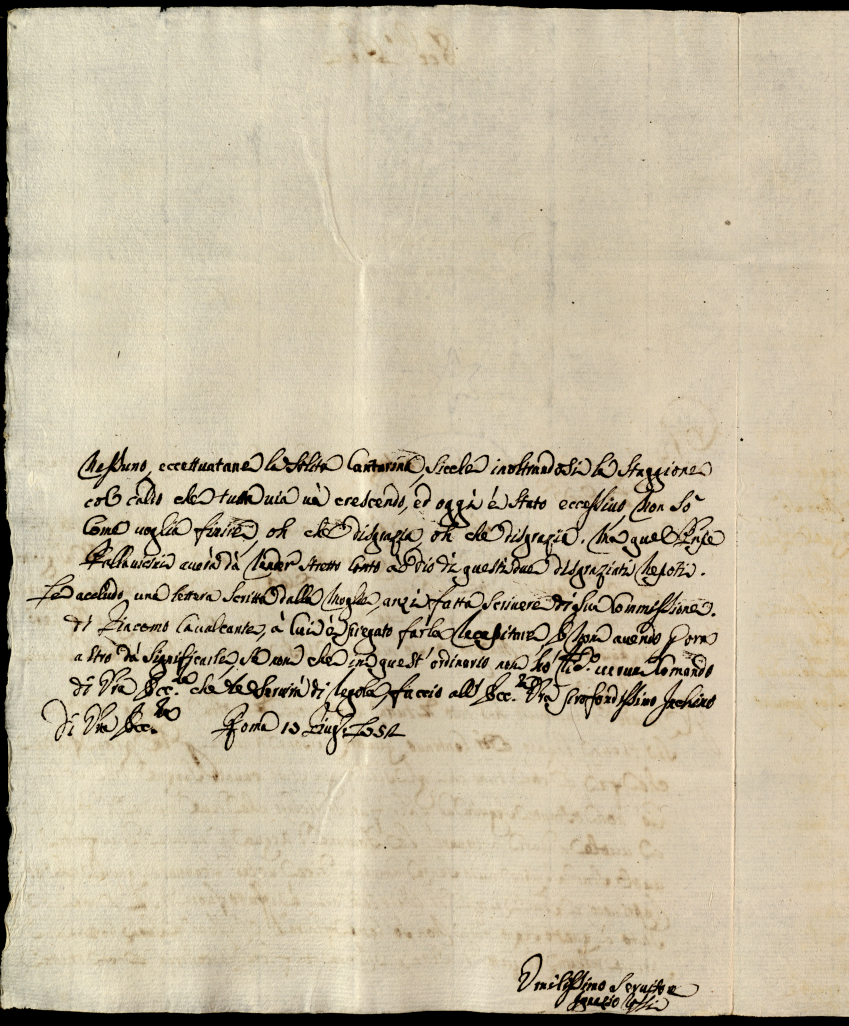 Nessuno, eccettuatane la solita Cantarina, sicche inoltrandosi la Staggione
col caldo che tutta via và crescendo, ed oggi è stato eccessivo, non sò
come voglia finire, oh che disgrazia oh che disgrazia. Ma quel
Pallavicini averà dà render stretto conto a Dio di questi due disgraziati Nepoti.
Le accludo, una lettera scritta dalla Moglie, anzi fatta scrivere di sua Commissione.
di Giacomo Cavalcante, à lui è pregato farla recapitare, e non avendo
altro dà significarle, se non che in quest' ordinario non hò verun Comando
di Vra Ecc.za che le servirà di regola, faccio all' Ecc.za Vra profondissimo Inchino
Di Vra Ecc.za Roma 13
Umilissimo Servitore
Ignazio